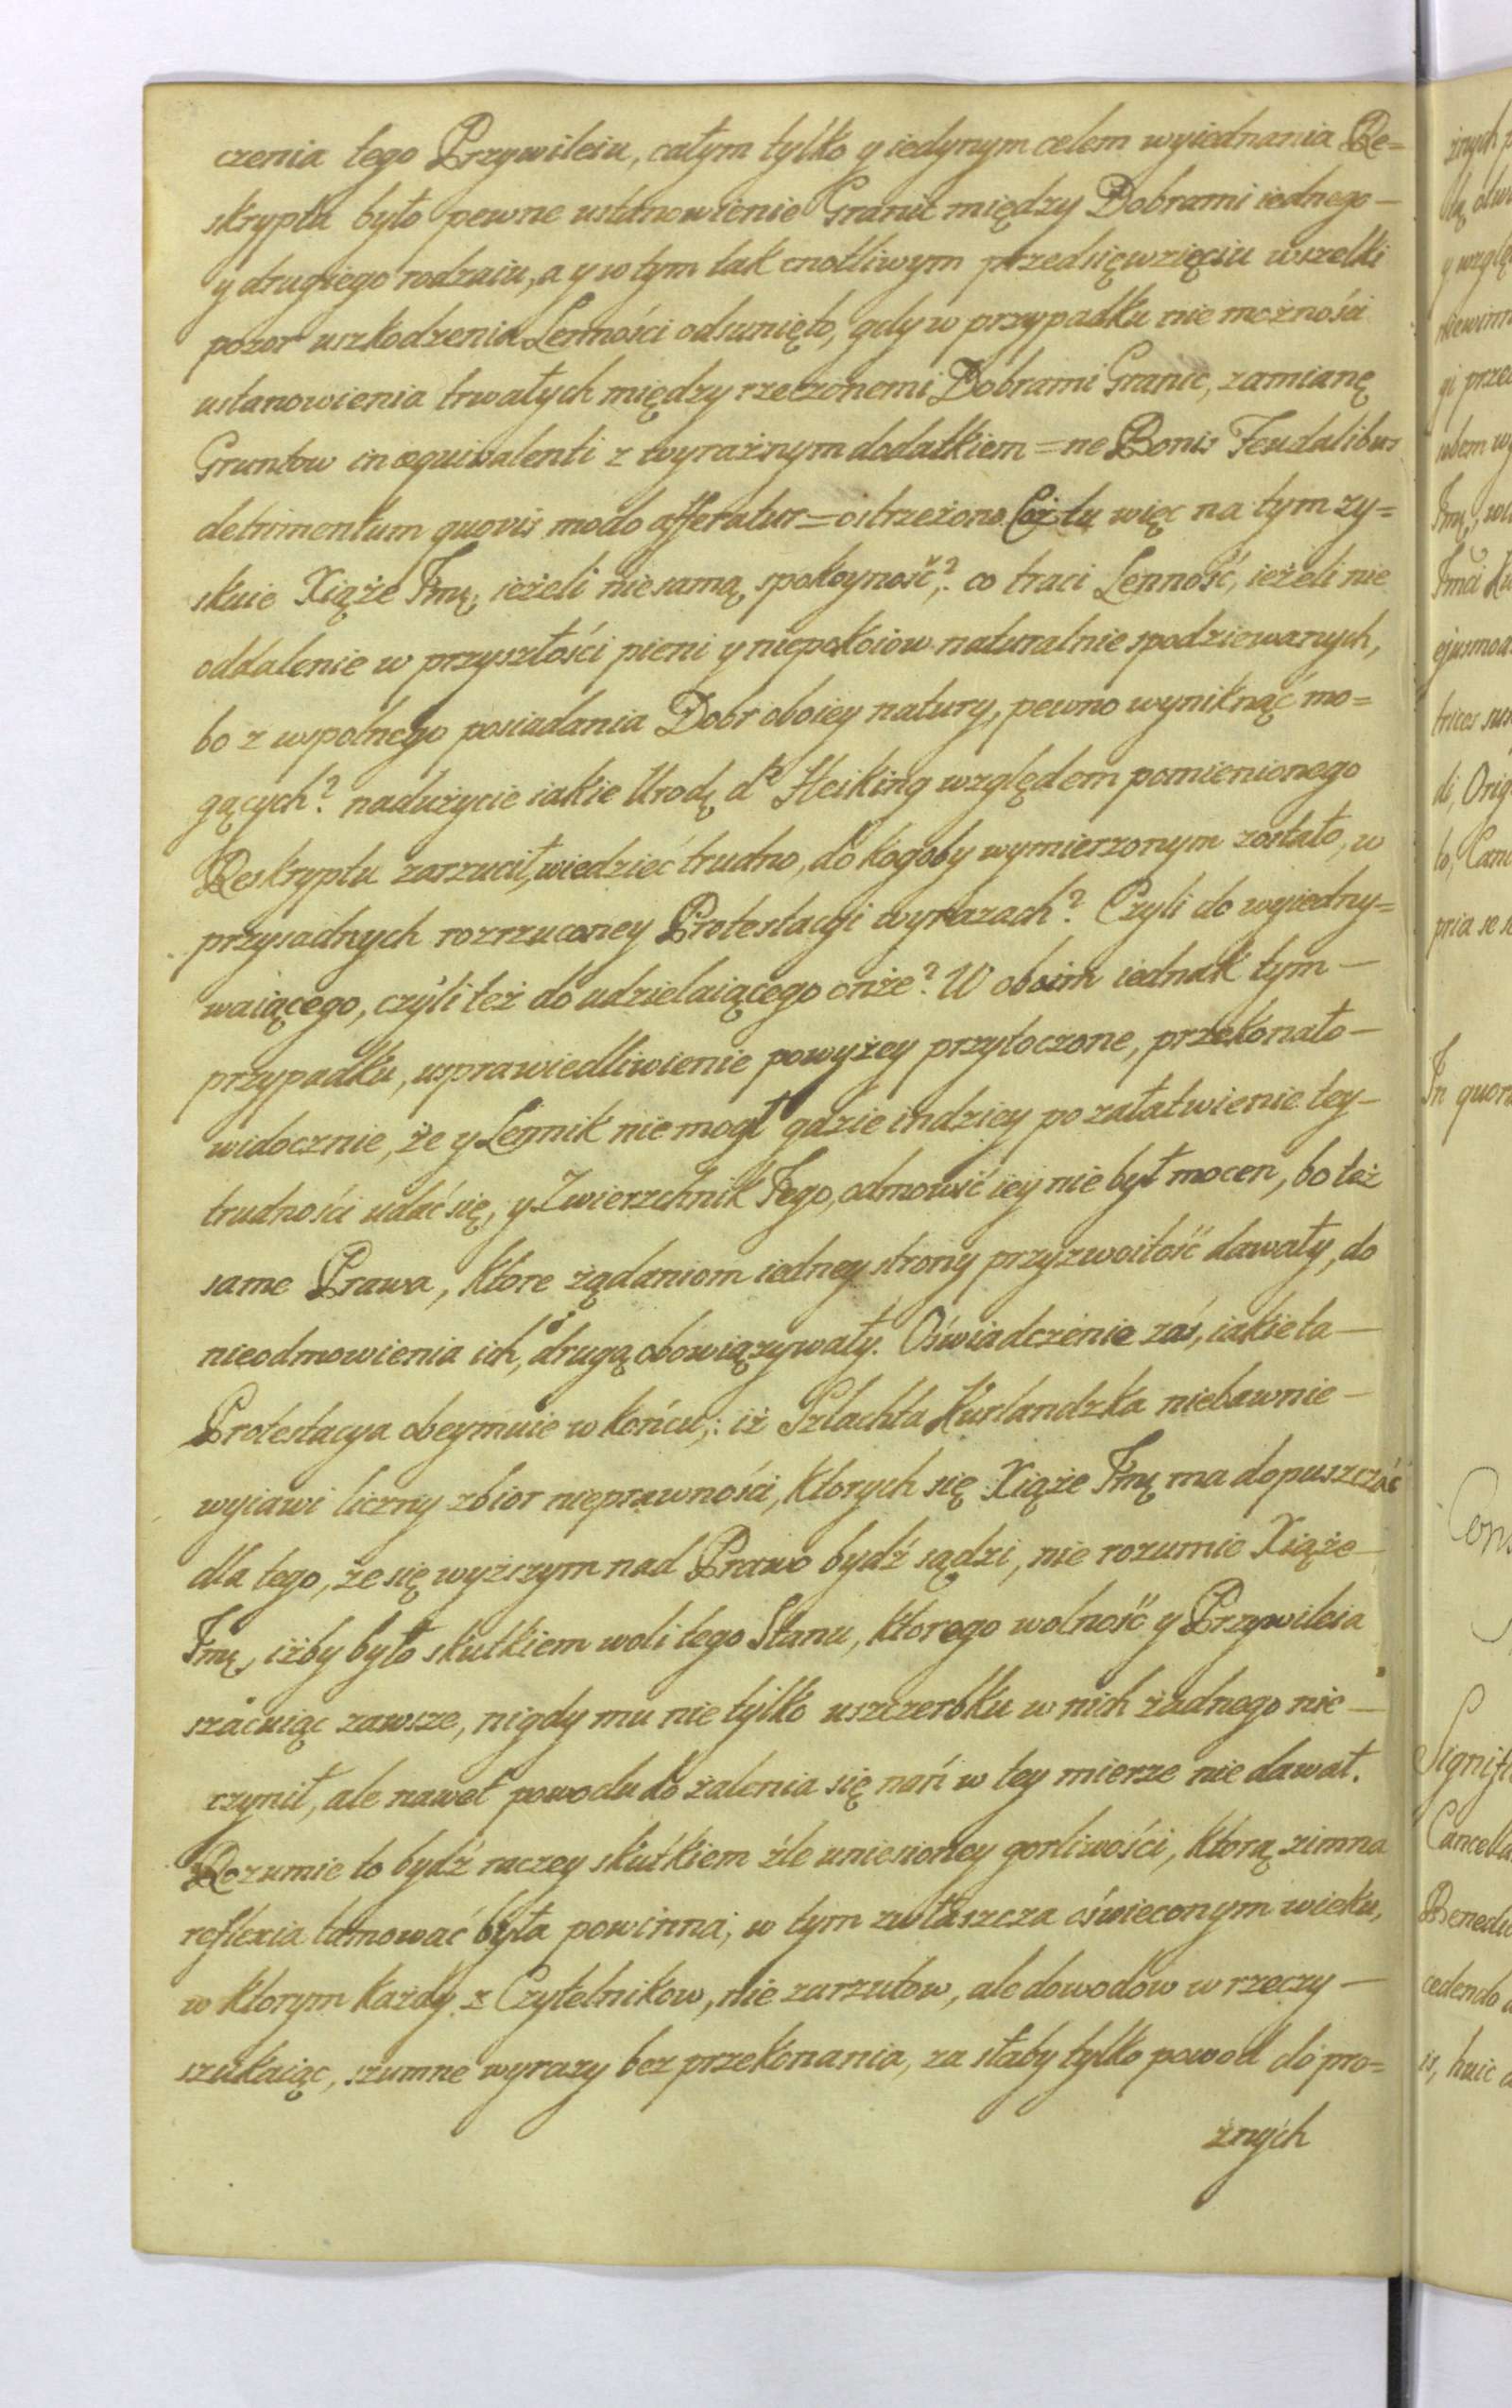 czenia tego Przywileiu, całym tylko y iedynym celem wyiednania Re=
skryptu było pewne ustanowienie Granic między Dobrami iednego —
y drugiego rodzaiu, a y w tym tak cnotliwym przedsięwzięciu wszelki
pozor uszkodzenia Lenności odsunięto, gdy w przypadku nie możności
ustanowienia trwałych między rzeczonemi Dobrami Granic, zamianę
Gruntow in æquivalenti z wyrażnym dodatkiem = ne Bonis Feudalibus
detrimentum quovis modo afferatur = ostrzeżono. Coż tu więc na tym zy=
skuie Xiąże Jmę, ieżeli nie samą spokoyność? co traci Lenność, ieżeli nie
oddalenie w przyszłości pieni y niepokoiow naturalnie spodziewanych,
bo z wspolnego posiadania Dobr oboiey natury, pewno wyniknąć mo=
gących? nadużycie iakie Urodz de Heiking względem pomienionego
Reskryptu zarzucił, wiedzieć trudno, do kogoby wymierzonym zostało, w
przysadnych rozrzuconey Protestacyi wyrazach? Czyli do wyiedny=
waiącego, czyli też do udzielaiącego onże? W oboim iednak tym —
przypadku, usprawiedliwienie powyżey przytoczone, przekonało —
widocznie, że y Lennik nie mogł gdzie indziey po załatwienie tey —
trudności udać się, y Zwierzchnik Jego, odmowić iey nie był mocen, bo też
same Prawa, ktore żądaniom iedney strony przyzwoitość dawały, do
nieodmowienia ich, drugą obowiązywały. Oświadczenie zaś, iakie ta —
Protestacya obeymuie w końcu; iż Szlachta Kurlandzka niebawnie —
wyiawi liczny zbior nieprawności, ktorych się Xiąże Jmę ma dopuszczać
dla tego, że się wyższym nad Prawo bydź sądzi, nie rozumie Xiąże —
Jmę, iżby było skutkiem woli tego Stanu, ktorego wolność y Przywileia
szacuiąc zawsze, nigdy mu nie tylko uszczerbku w nich żadnego nie —
czynił, ale nawet powodu do żalenia się nań w tey mierze nie dawał.
Rozumie to bydź raczey skutkiem źle uniesioney gorliwości, ktorą zimna
reflexia tamować była powinna; w tym zwłaszcza oświeconym wieku,
w ktorym każdy z Czytelnikow, nie zarzutow, ale dowodow w rzeczy —
szukaiąc, szumne wyrazy bez przekonania, za słaby tylko powod do pro=
żnych